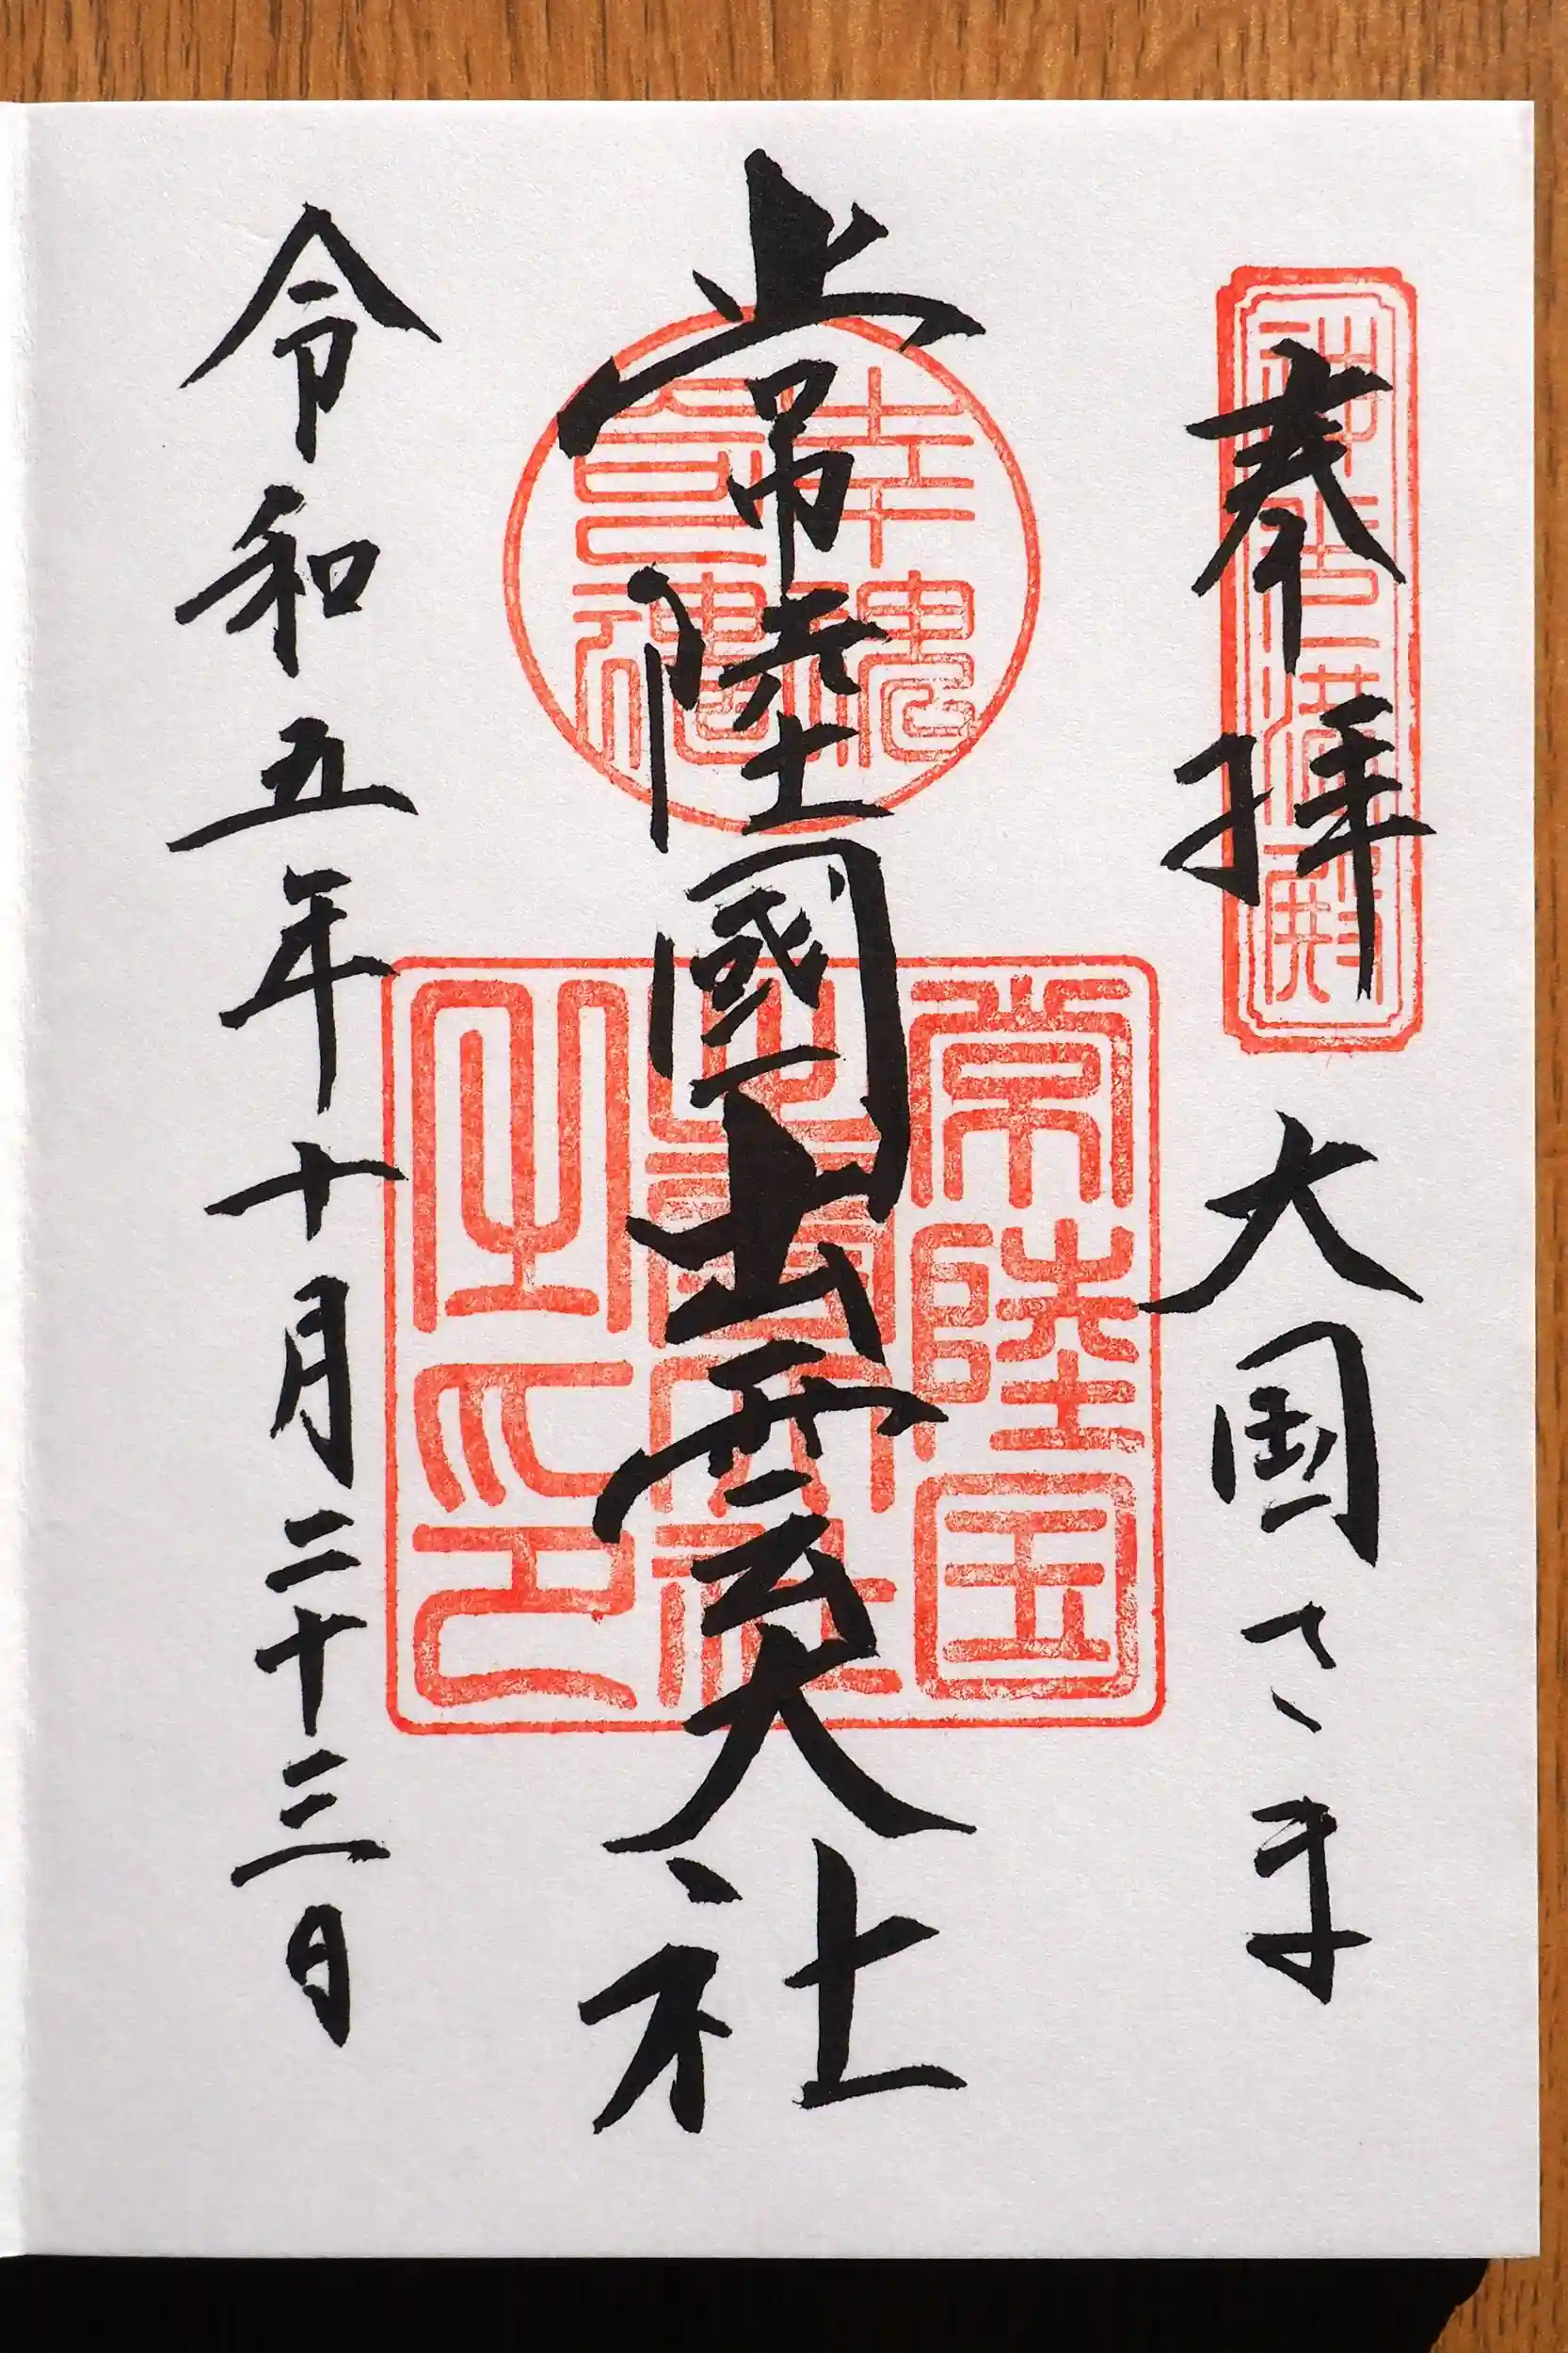 奉拝 大国さま
常陸國出雲大社
令和五年十月二十三日
幸魂
奇魂
常陸国
出雲大社
之印